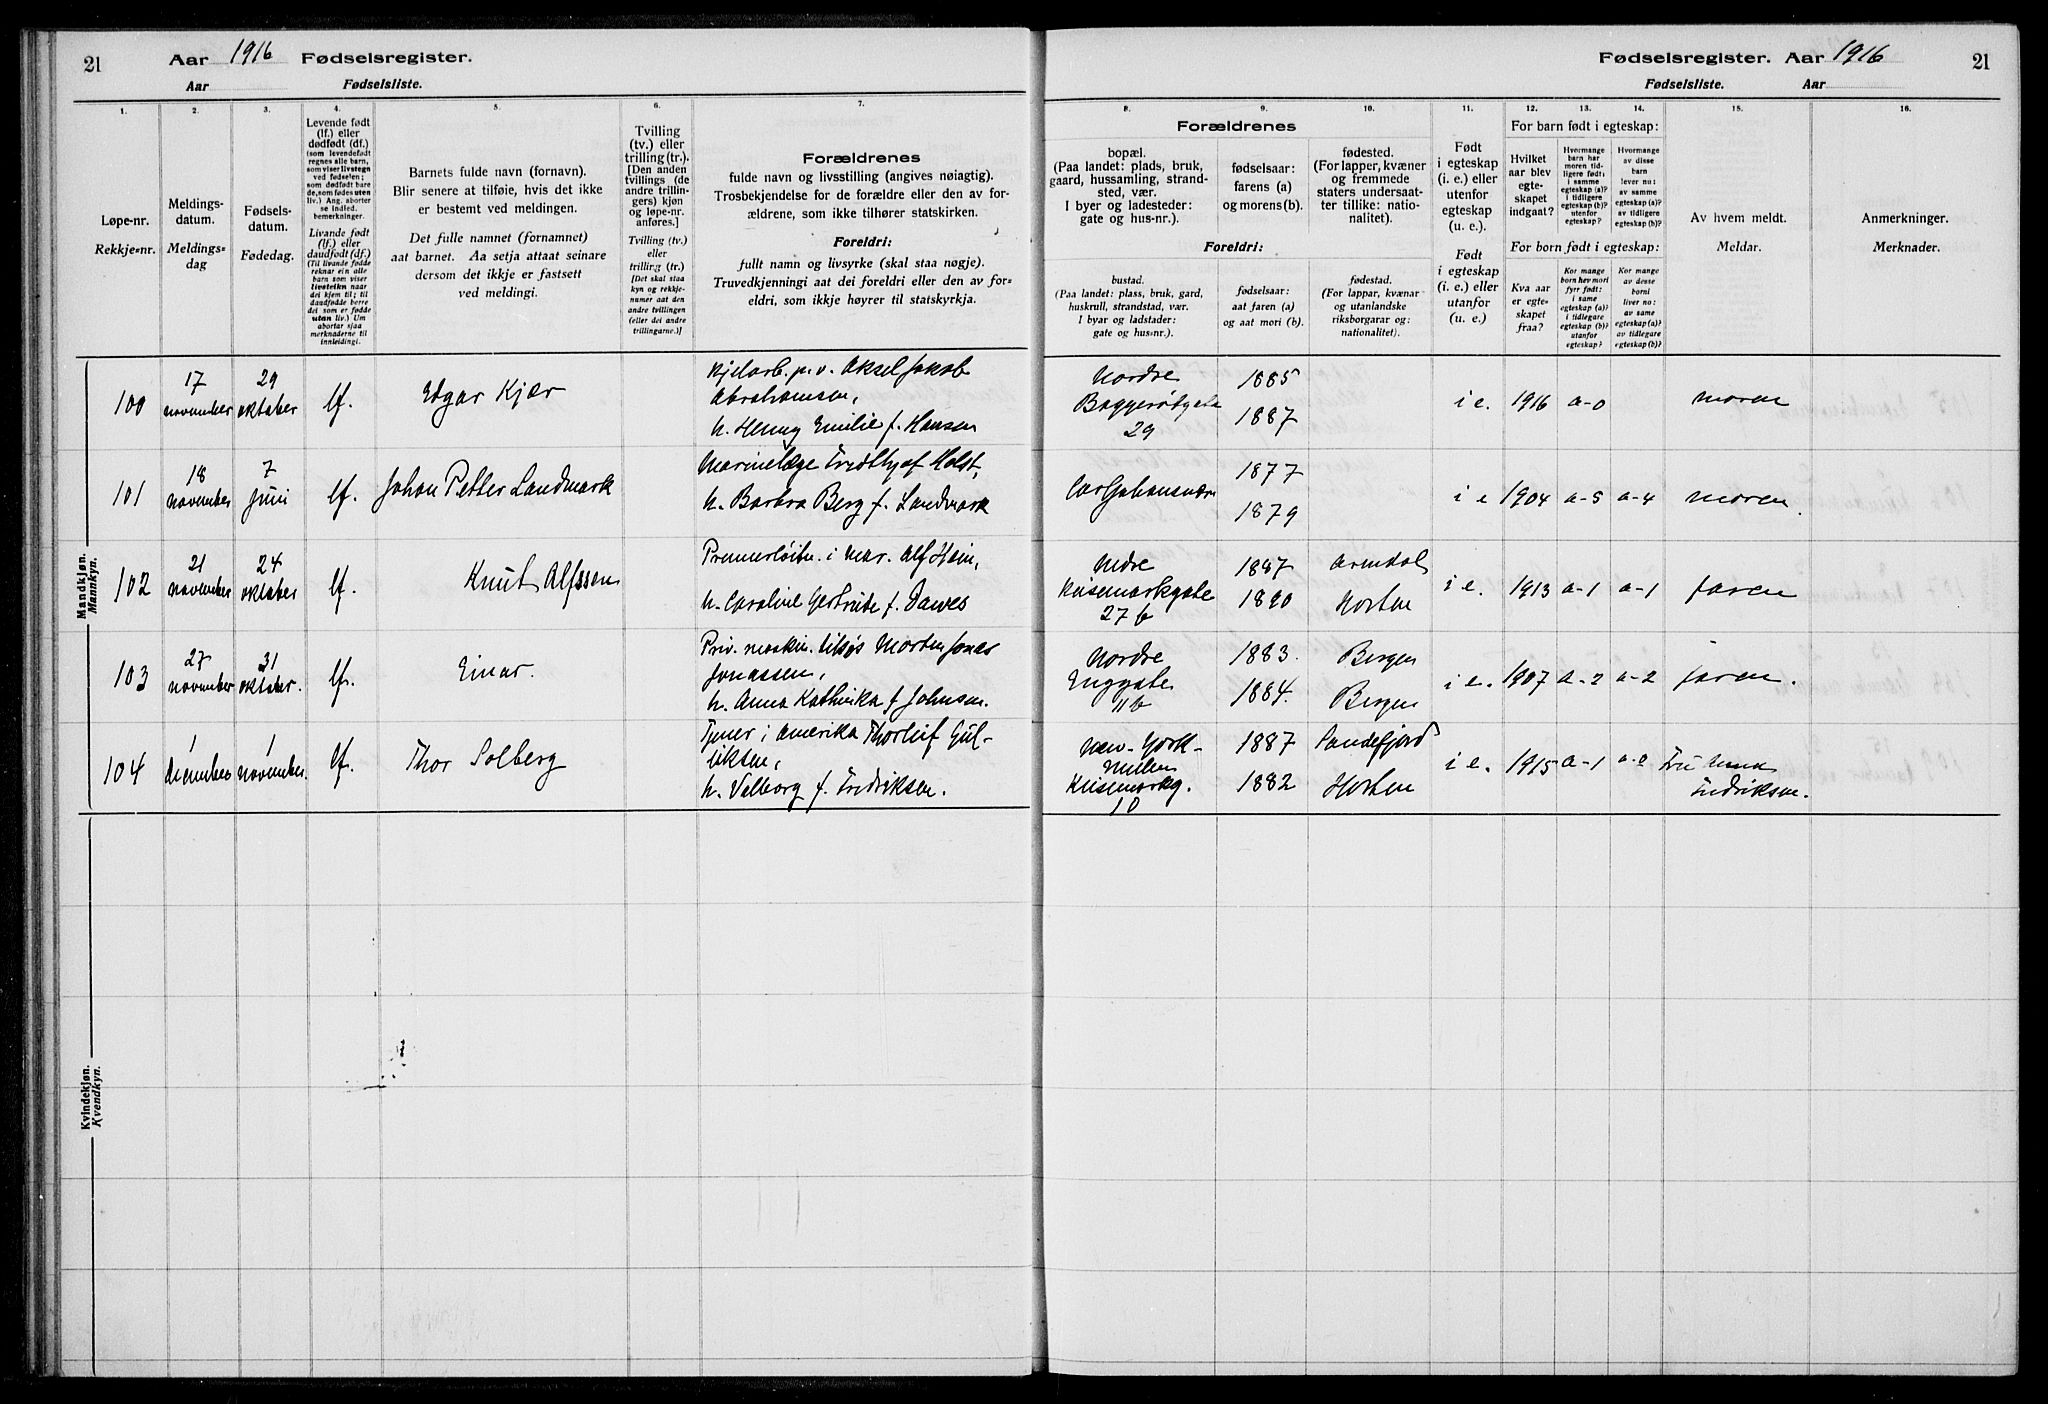 21
Aar 1916 Fødselsregister.
Aar Fødselsliste.
1.
2.
3.
4.
5.
6.
7.
Løpe-nr.
Rekkje-nr.
Meldings-
datum.
Meldings-
dag
Fødsels-
datum.
Fødedag.
Levende født
(lf.) eller
dødfødt (df.)
(som levendefødt
regnes alle barn,
som viser livstegn
ved fødselen;
som dødfødt bare
de, som fødes uten
liv.) Ang. aborter
se indled.
bemerkninger.
Livande født
(lf.) eller
daudfødt (df.)
(Til livande fødde
reknar ein alle
barn som viser
livsteikn naar
dei kjem til; til
daudfødde berre
dei som er fødde
utan liv.) Um
abortar sjaa
merknaderne til
innleidingi.
Barnets fulde navn (fornavn).
Blir senere at tilføie, hvis det ikke
er bestemt ved meldingen.
Det fulle namnet (fornamnet)
aat barnet. Aa setja attaat seinare
dersom det ikkje er fastsett
ved meldingi.
Tvilling
(tv.) eller
trilling (tr.).
[Den anden
tvillings (de
andre trillin-
gers) kjøn
og løpe-nr.
anføres.]
Tvilling (tv.)
eller
trilling (tr.)
[Det skal staa
kyn og rekkje-
numer aat den
andre tvillingen
(eller dei andre
trillingarne.)]
Forældrenes
fulde navn og livsstilling (angives nøiagtig).
Trosbekjendelse for de forældre eller den av for-
ældrene, som ikke tilhører statskirken.
Foreldri:
fullt namn og livsyrke (skal staa nøgje).
Truvedkjenningi aat dei foreldri eller den av for-
eldri, som ikkje høyrer til statskyrkja.
Mandkjøn.
Mannkyn.
100
17
november
29
oktober
lf.
Edgar Kjær
Kjelarb. p. v. Aksel Jakob
Abrahamsen,
h. Henny Emilie f. Hansen
101
18
november
7
juni
lf.
Johan Petter Landmark
Marinelæge Fridthjof Holst,
h. Barbra Berg f. Landmark
102
21
november
24
oktober
lf.
Knut Alfssen
Premierløitn. i mar. Alf Heim,
h. Caroline Gertrude f. Dawes
103
27
november
31
oktober.
lf.
Einar.
Priv. maskin. tilsys Morten Jonas
Jonassen,
h. Anna Kathinka f Johnsen.
104
1
december
1
november.
lf.
Thor Solberg
Tjener i Amerika Thorleif Gul-
liksen,
h. Valborg f. Fredriksen.
Kvindekjøn.
Kvendkyn.
Fødselsregister. Aar 1916
21
Fødselsliste. Aar
8.
9.
10.
11.
12.
13.
14.
15.
16.
Forældrenes
bopæl.
(Paa landet: plads, bruk,
gaard, hussamling, strand-
sted, vær.
I byer og ladesteder:
gate og hus-nr.).
fødselsaar:
farens (a)
og morens (b).
fødested.
(For lapper, kvæner
og fremmede
staters undersaat-
ter tillike: natio-
nalitet).
Foreldri:
bustad.
(Paa landet: plass, bruk, gard,
huskrull, strandstad, vær.
I byar og ladstader:
gate og hus-nr.).
fødselsaar:
aat faren (a)
og aat mori (b).
fødestad.
(For lappar, kvænar
og utanlandske
riksborgarar og:
nationalitet).
Født
i egteskap
(i. e.) eller
utenfor
egteskap
(u. e.).
Født
i egteskap
(i. e.) eller
utanfor
(u. e.)
For barn født i egteskap:
Hvilket
aar blev
egte-
skapet
indgaat?
Hvormange
barn har
moren tid-
ligere født:
i samme
egteskap (a)?
i tidligere
egteskap (b)?
utenfor
egteskap?
Hvormange
av disse
barn
lever nu:
av samme
egteskap (a)?
av tidligere
egteskap (b)?
For born født i egteskap:
Kva aar
er egte-
skapet
fraa?
Kor mange
born hev mori
fyrr født:
i same
egteskap (a)?
i tidlegare
egteskap (b)?
utanfor
egteskap?
Kor mange
av desse
borni
liver no:
av same
egteskap (a)?
av tidlegare
egteskap (b)?
Av hvem meldt.
Meldar.
Anmerkninger.
Merknader.
Nordre
Baggerødgate
29
1885
1887
i e.
1916
a-0
moren
Carljohansværn
1877
1879
i e
1904
a-5
a-4
moren.
Nedre
Keisemarkgate
27 b
1887
1890
Arendal
Horten
i e.
1913
a-1
a-1
faren
Nordre
Enggate
11 b
1883.
1884.
Bergen
Bergen
i e.
1907
a-2
a-2
faren.
New-York
Mellem
Keisemarkg.
10
1887
1882
Sandefjord
Horten
i e.
1915
a-1
a-0
Fru Anna
Fredriksen.